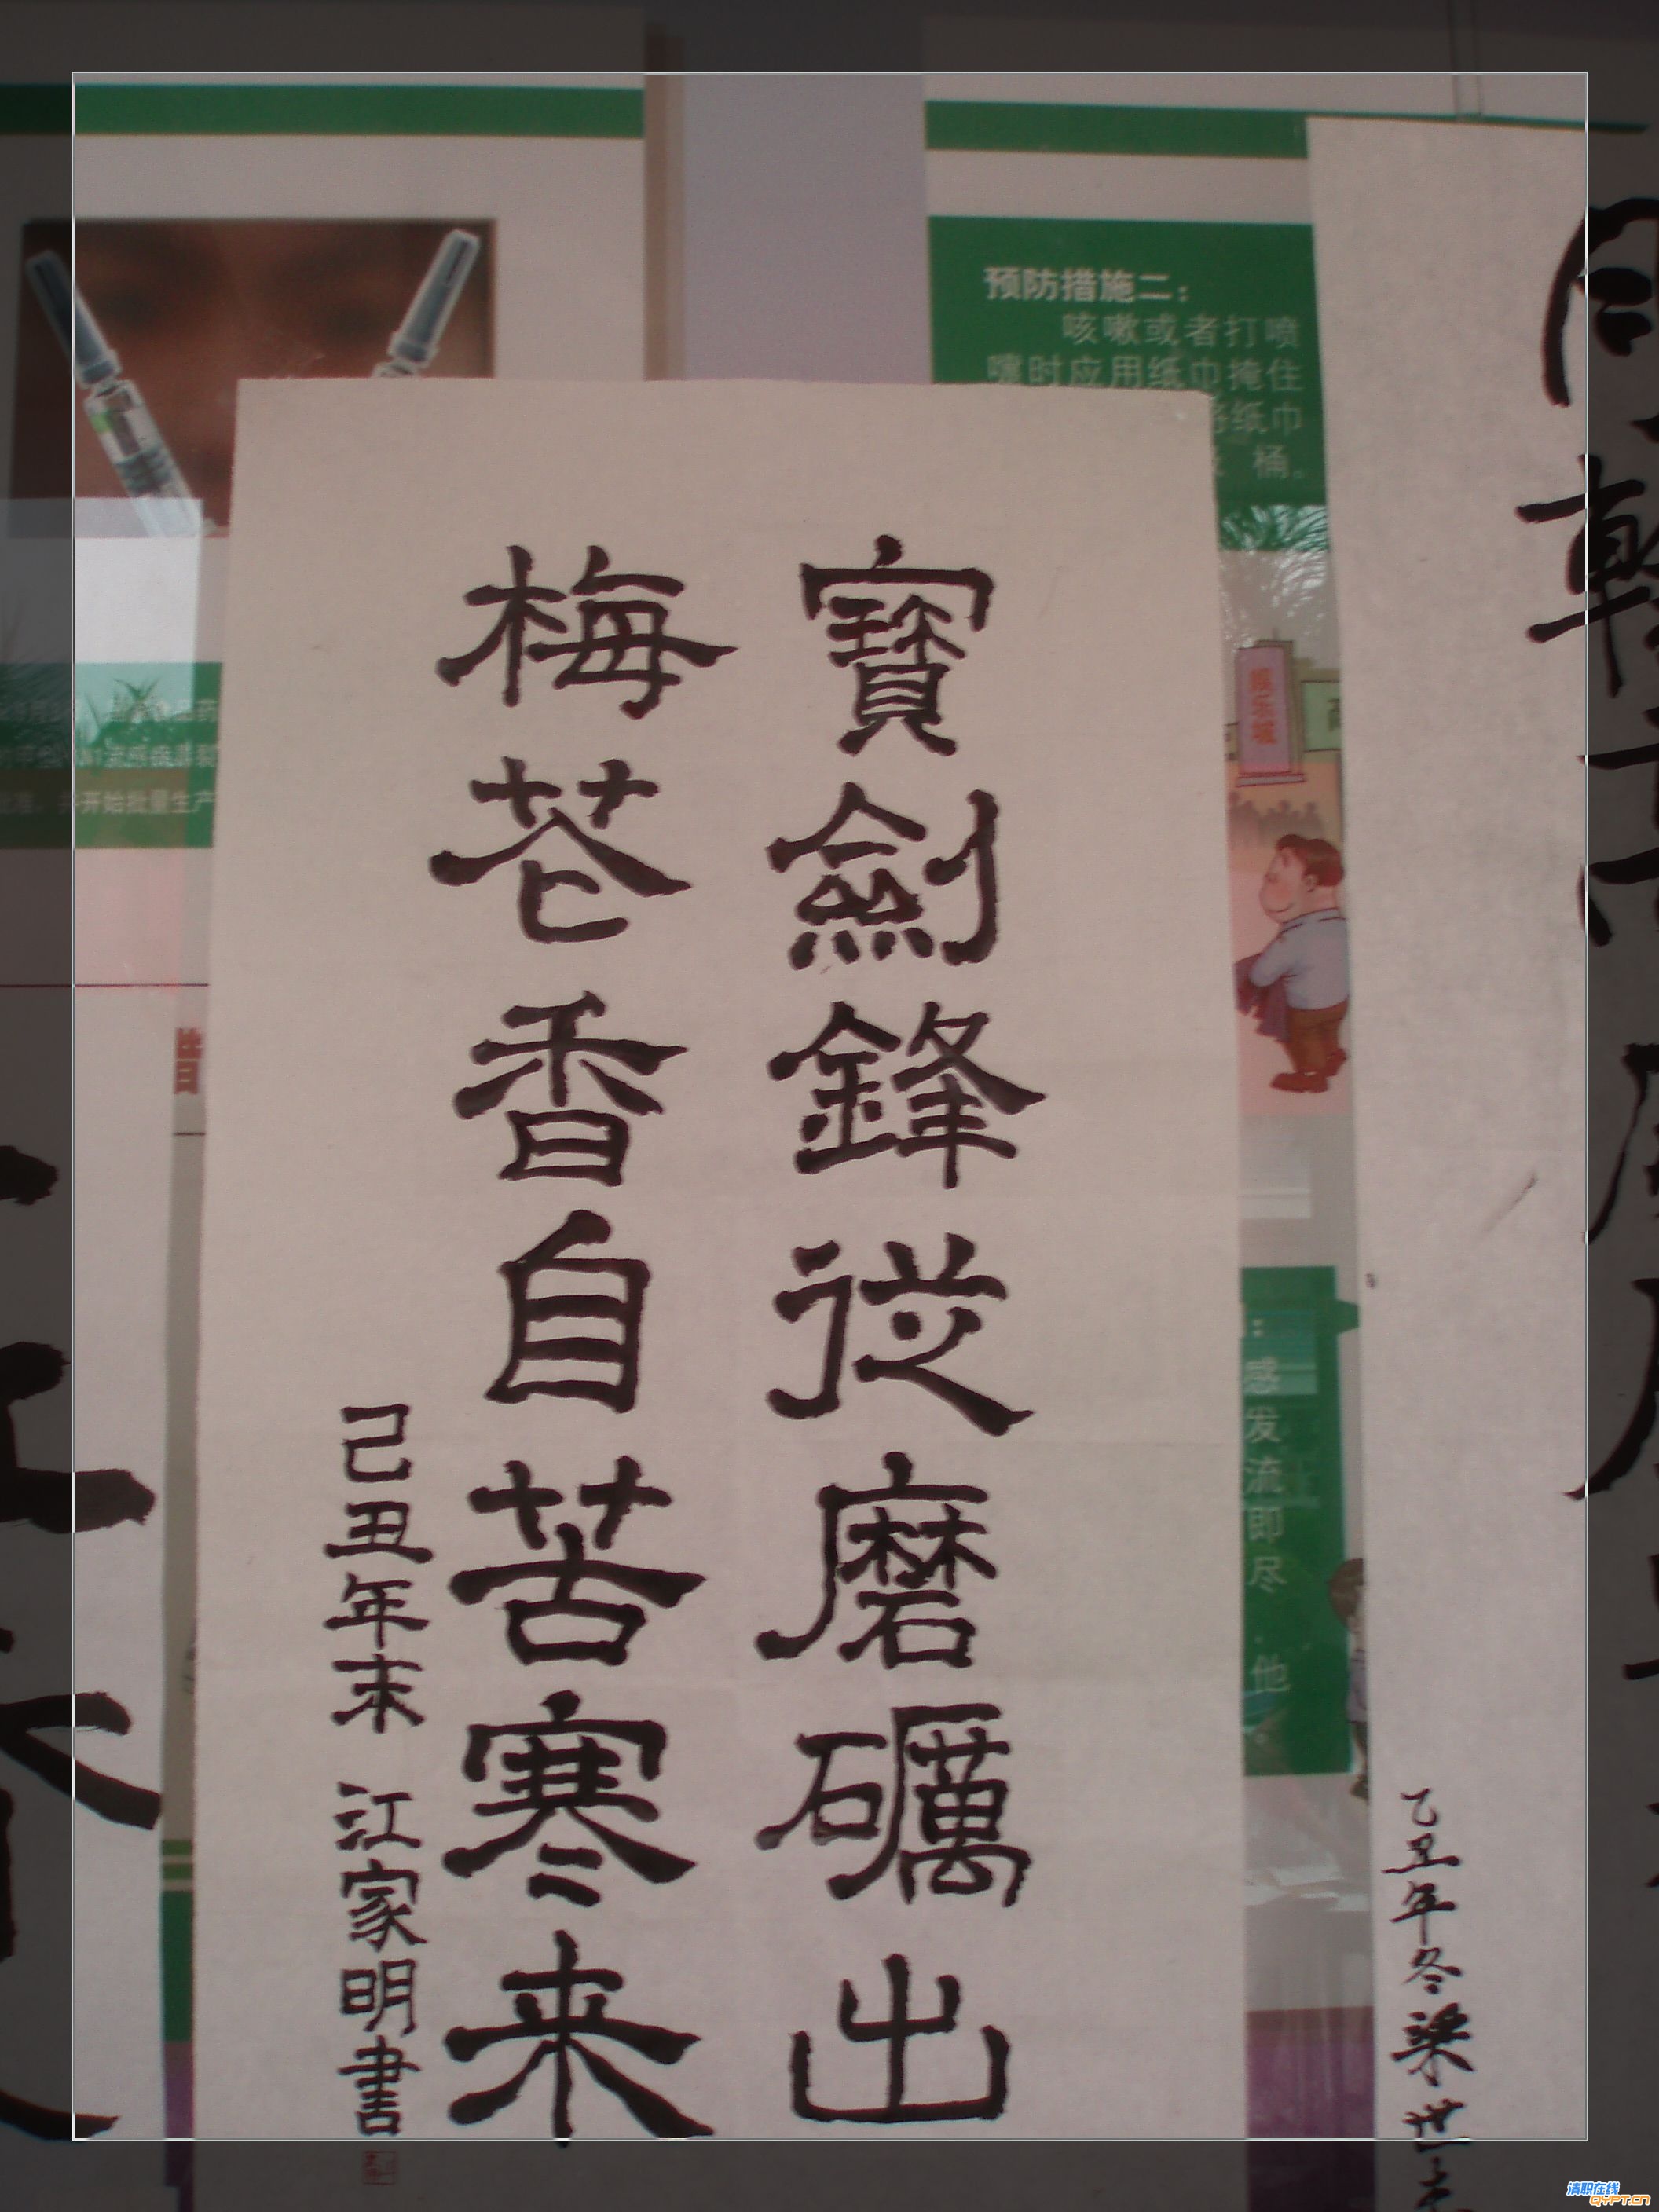 寶劍鋒從磨礪出
梅花香自苦寒来
己丑年末 江家明書
预防措施二：
咳嗽或者打喷
嚏时应用纸巾掩住
纸巾
桶。
娱乐城
开始批量生产
感
发
流
即
尽
他
乙丑年冬梁世
清职在线
QYPT.CN